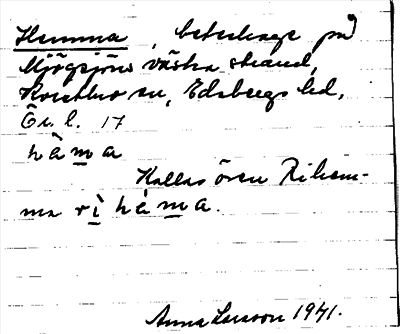 Hemma, beteshage på
Mjögsjöns västra strand,
Kvistbro sn, Edsbergs hd,
Ör. l. 17
hèma
Kallas även Rihem-
ma rìhèma.
Anna Larsson 1941.